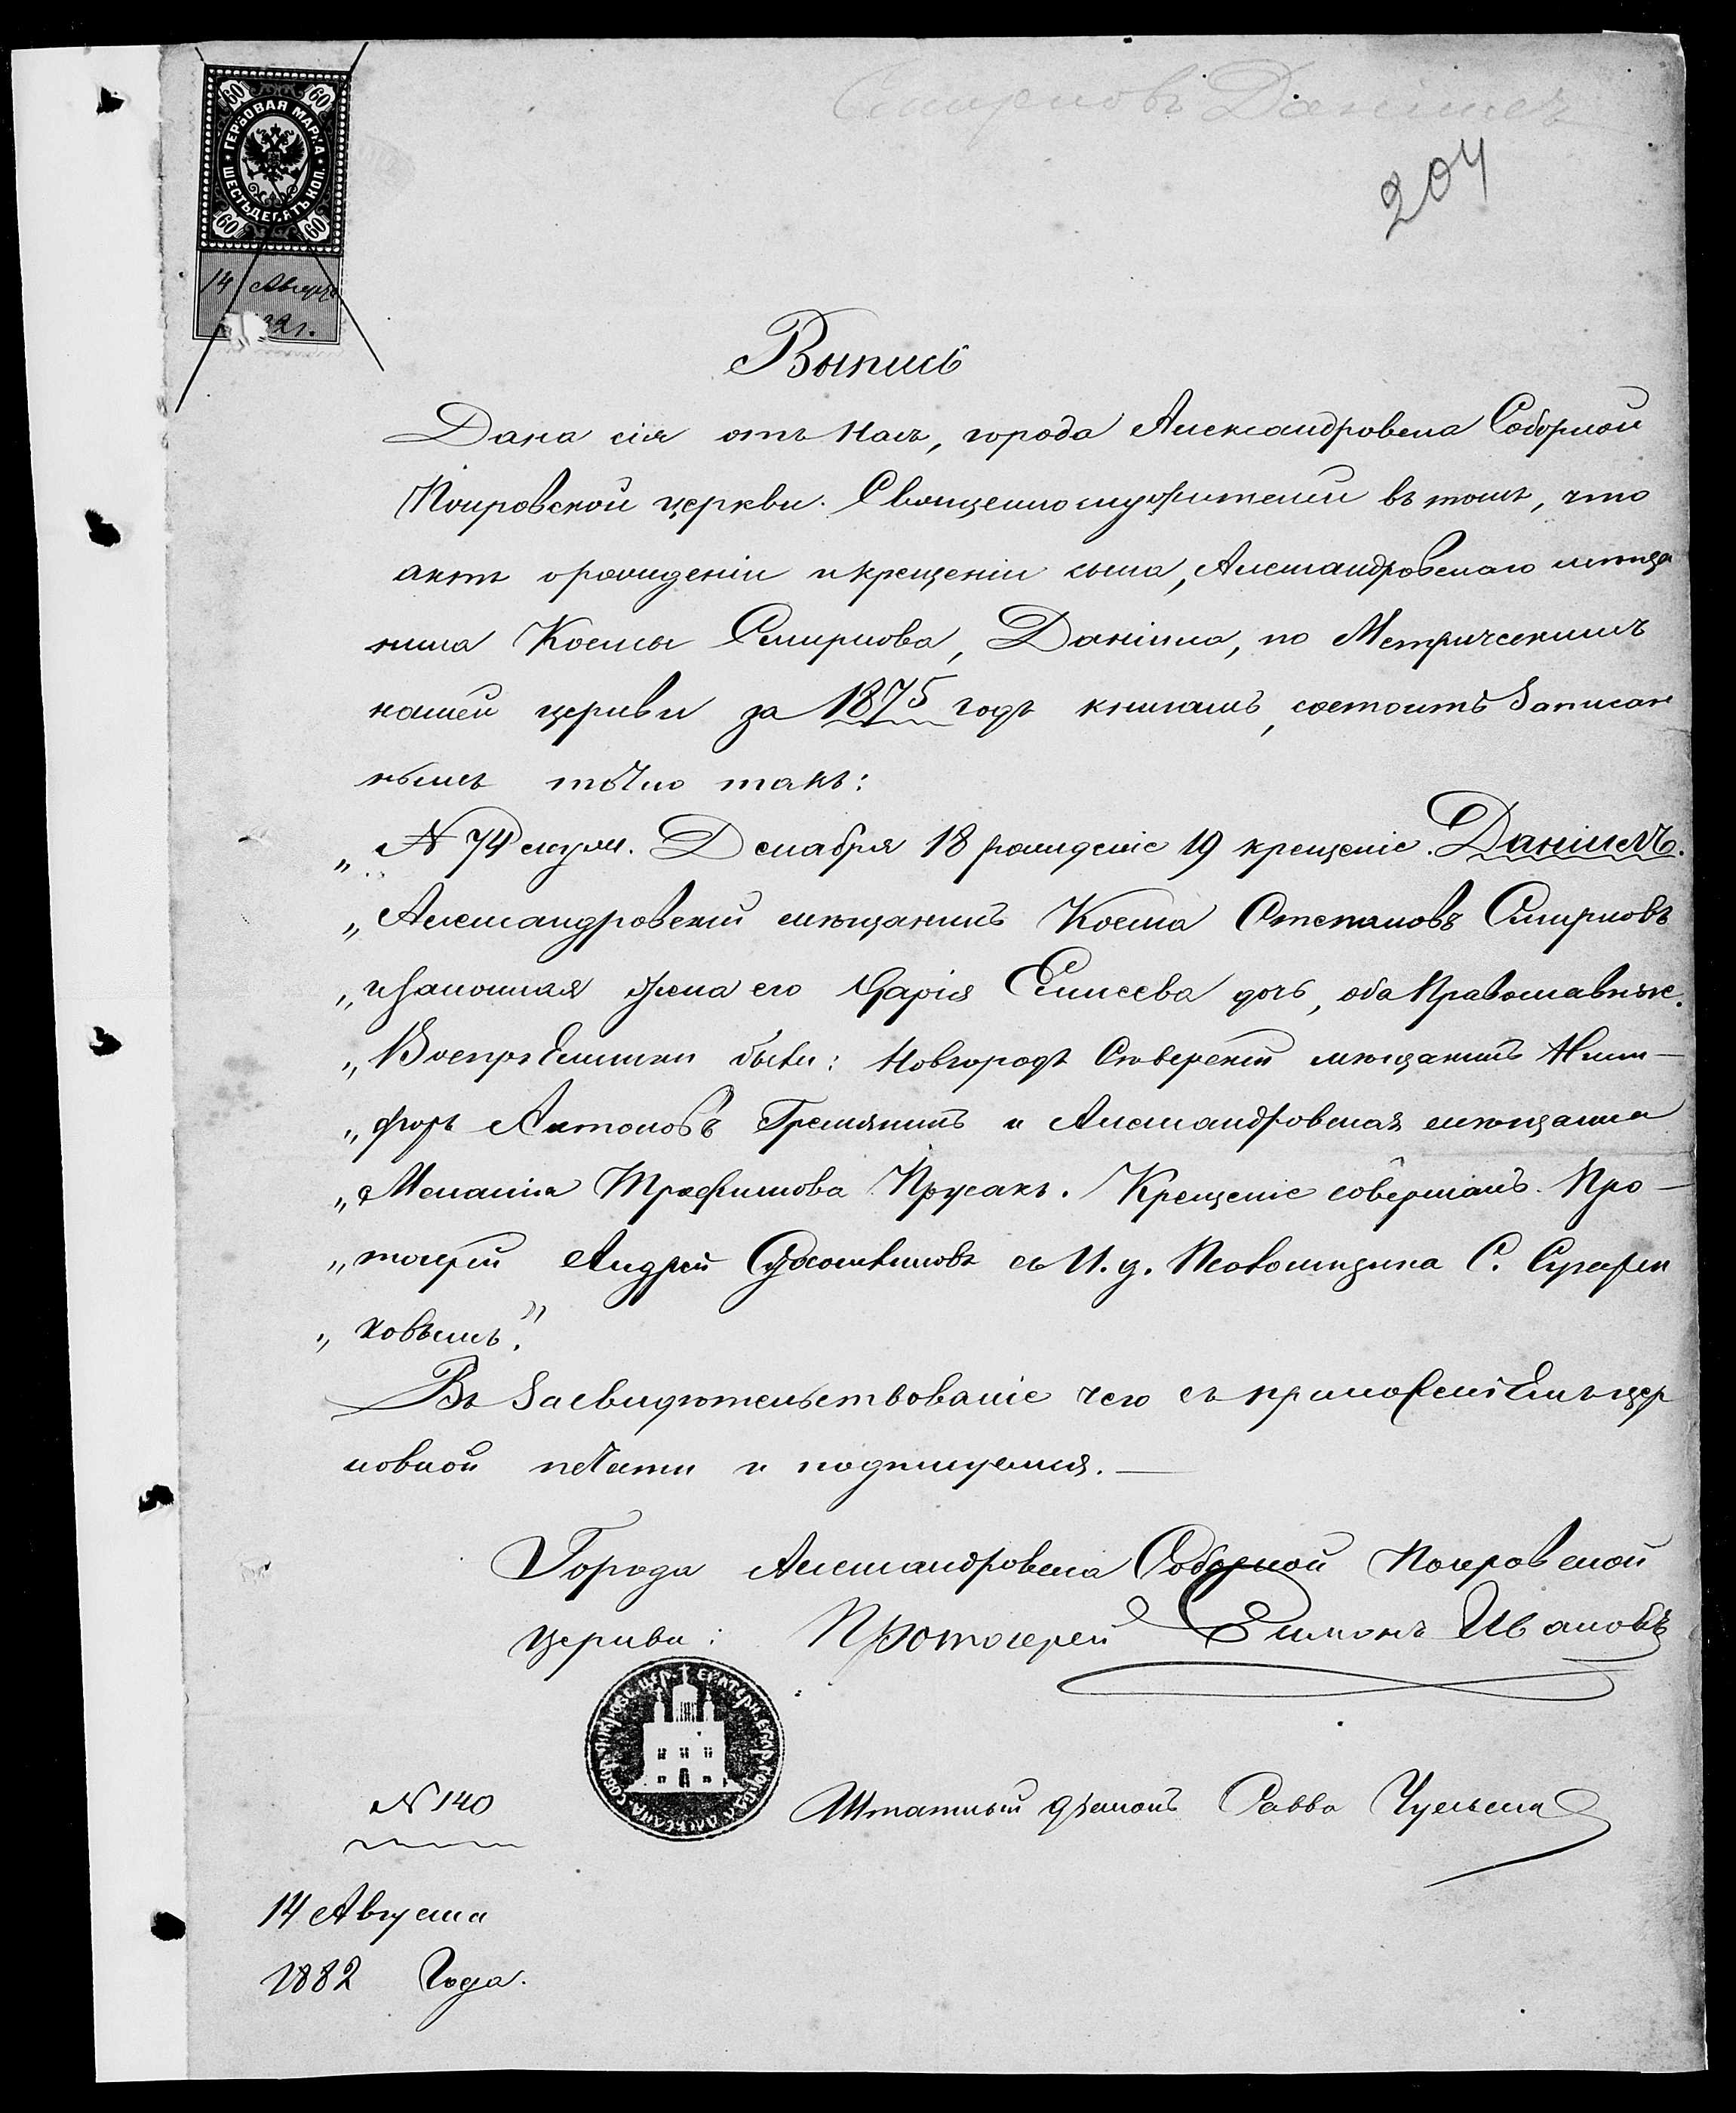 Смирновъ Даніилъ
204
60 60
ГЕРБОВАЯ МАРКА
ШЕСТЬДЕСЯТЪ КОП.
60 60
14 Августа
82 г.
Выпись
Дана сія отъ насъ, города Александровска Соборной
Покровской церкви. Священнослужителей въ томъ, что
актъ о рожденіи и крещеніи сына, Александровскаго мѣща
нина Космы Смирнова, Даніила, по Метрическимъ
нашей церкви за 1875 годъ книгамъ, состоитъ записан
нымъ точно такъ:
„ N 74 муж. Декабря 18 рожденіе 19 крещеніе. Даніилъ.
„ Александровскій мѣщанинъ Косма Степановъ Смирновъ
„ и законная жена его Дарія Елисеева дочь, оба Православные.
„ Воспріемники были: Новгородъ Сѣверскій мѣщанинъ Ники-
„ форъ Антоновъ Гремякинъ и Александровская мѣщанка
„ Меланія Трофимова Прусакъ. Крещеніе совершалъ Про-
„ тоіерей Андрей съ И. д. Псаломщика С.
„ ковымъ."
Въ засвидѣтельствованіе чего съ приложеніемъ цер
ковной печати и подпишемся. —
Города Александровска Соборной Покровской
церкви: Протоіерей Симонъ Ивановъ
N 140
Штатный діаконъ Савва
14 Августа
1882 Года.